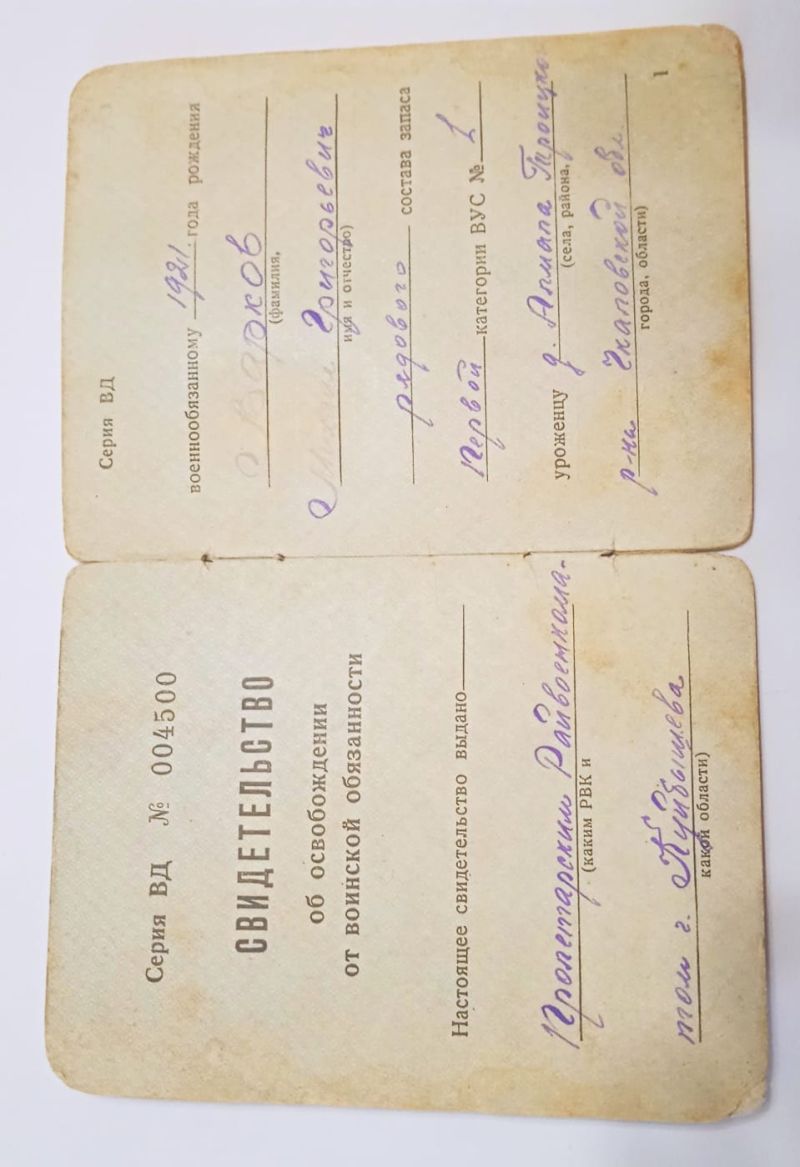 Серия ВД № 004500
СВИДЕТЕЛЬСТВО
об освобождении
от воинской обязанности
Настоящее свидетельство выдано
Пролетарским Райвоенкома-
(каким РВК и
том г. Куйбышева
какой области)
Серия ВД
военнообязанному 1921 года рождения
Варков
(фамилия,
Михаил Григорьевич
имя и отчество)
рядового состава запаса
Первой категории ВУС № 1
уроженцу д. Алмала Троицко
(села, района,
р-на Чкаловской обл.
города, области)
1